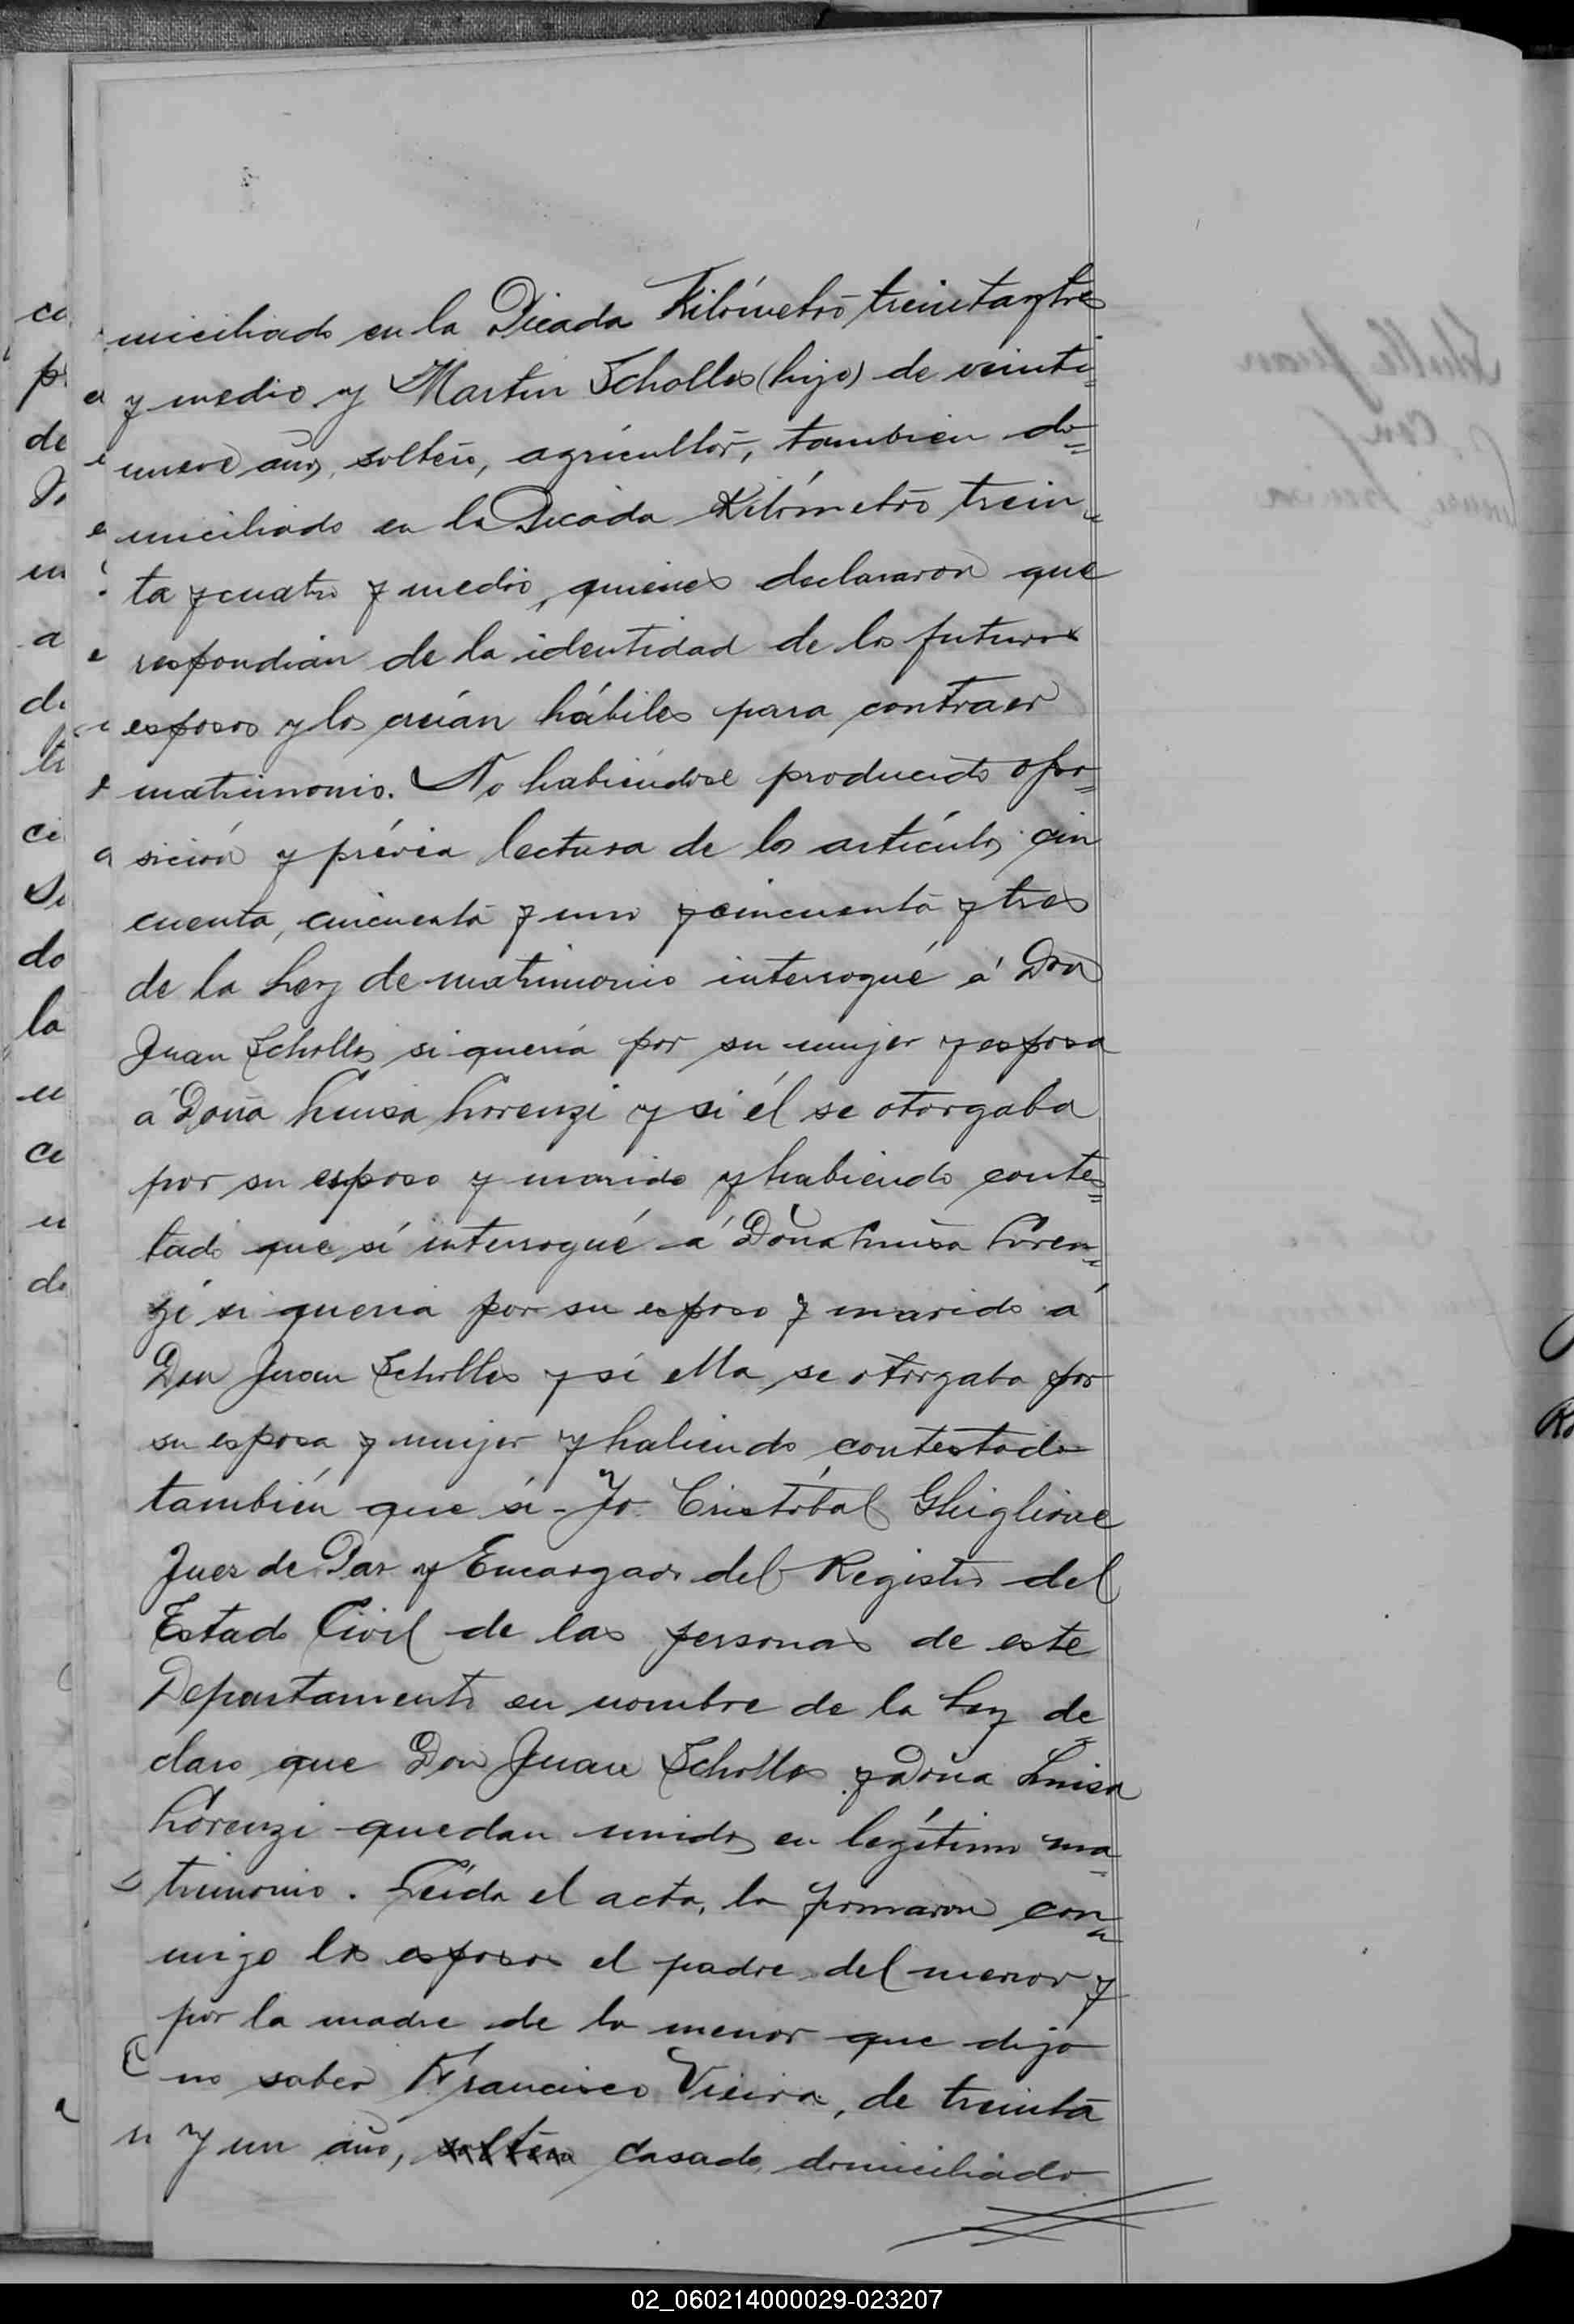 miciliado en la Picada Kilómetro treinta y tres
y medio y Martin Scholles (hijo) de veinti=
nueve años, soltero, agricultor, tambien do=
miciliado en la Picada Kilómetro trein=
ta y cuatro y medio, quienes declararon que
respondian de la identidad de los futuros
esposos y los creían hábiles para contraer
matrimonio. No habiendose producido opo=
sición y prévia lectura de los artículos cin
cuenta, cincuenta y uno y cincuenta y tres
de la Ley de matrimonio interrogué á Don
Juan Scholles si quería por su mujer y esposa
á Doña Luisa Lorenzi y si él se otorgaba
por su esposo y marido y habiendo contes=
tado que sí interrogué á Doña Luisa Loren=
zi si queria por su esposo y marido á
Don Juan Scholles y si ella se otorgaba por
su esposa y mujer y habiendo contestado
también que si - Yo Cristóbal Ghiglione
Juez de Paz y Encargado del Registro del
Estado Civil de las personas de este
Departamento en nombre de la Ley de=
claro que Don Juan Scholles y Doña Luisa
Lorenzi quedan unidos en legítimo ma=
trimonio. Leída el acta, la firmaron con=
migo los esposos el padre del menor y
por la madre de la menor que dijo
no saber Francisco Vieira, de treinta
y un año, soltero casado, domiciliado
02_060214000029-023207